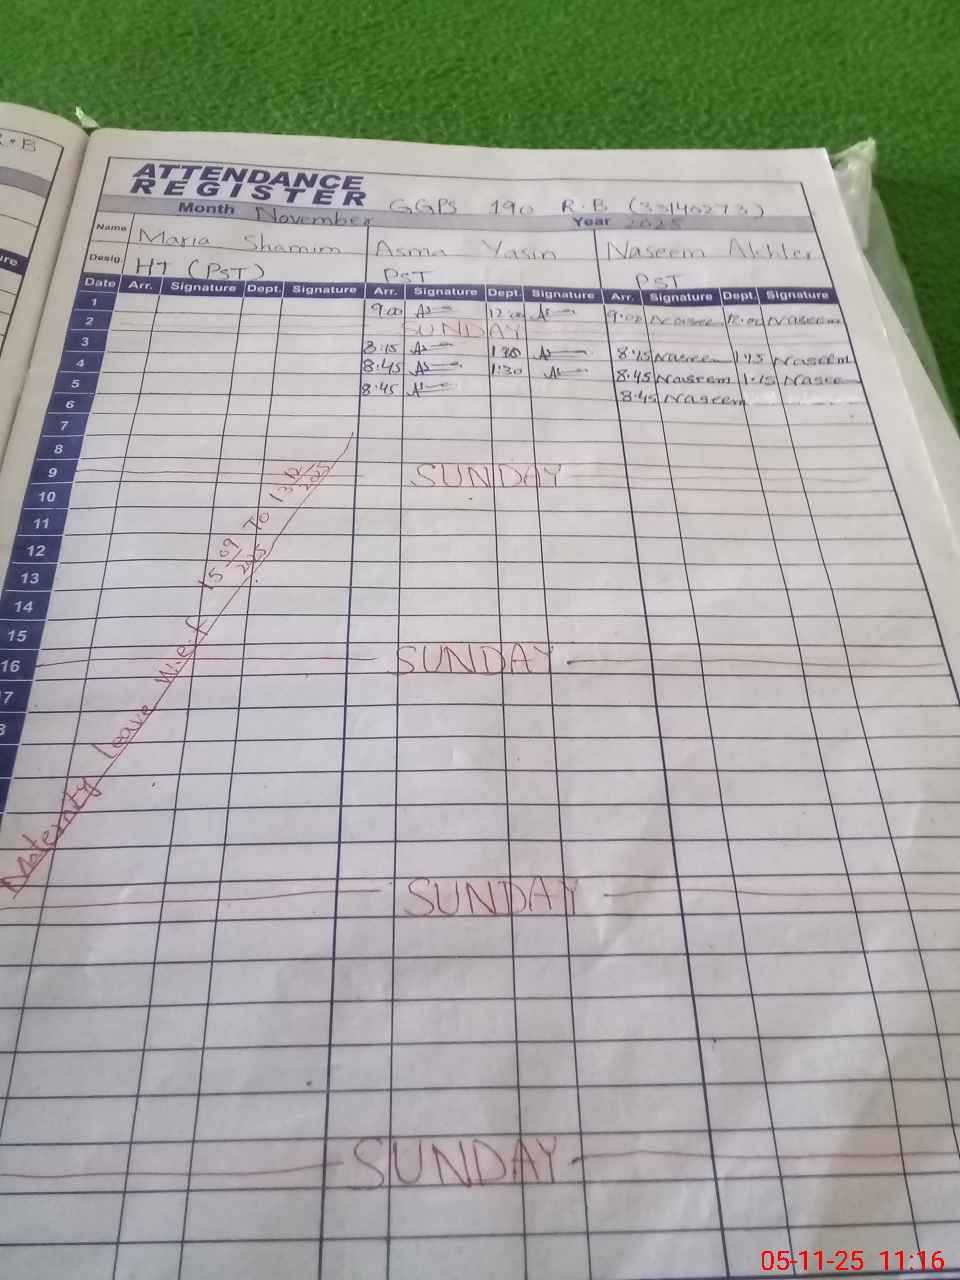 R.B
ATTENDANCE
REGISTER GGPS 190 R.B (33140273)
Month November Year 2025
Name Maria Shamim Asma Yasin Naseem Akhter
Desig. HT (PST) PST PST
Date Arr. Signature Dept. Signature Arr. Signature Dept. Signature Arr. Signature Dept. Signature
1 9:00 12:00 9:00 Naseem 12:00 Naseem
2 SUNDAY
3 8:15 1:30 8:15 Naseem 1:15 Naseem
4 8:45 1:30 8:45 Naseem 1:15 Naseem
5 8:45 8:45 Naseem
6
7
8
9 SUNDAY
10
11
12
13
14
15
16 SUNDAY
Maternity leave w.e.f 15 09/2025 To 13 12/2025
SUNDAY
SUNDAY
05-11-25 11:16